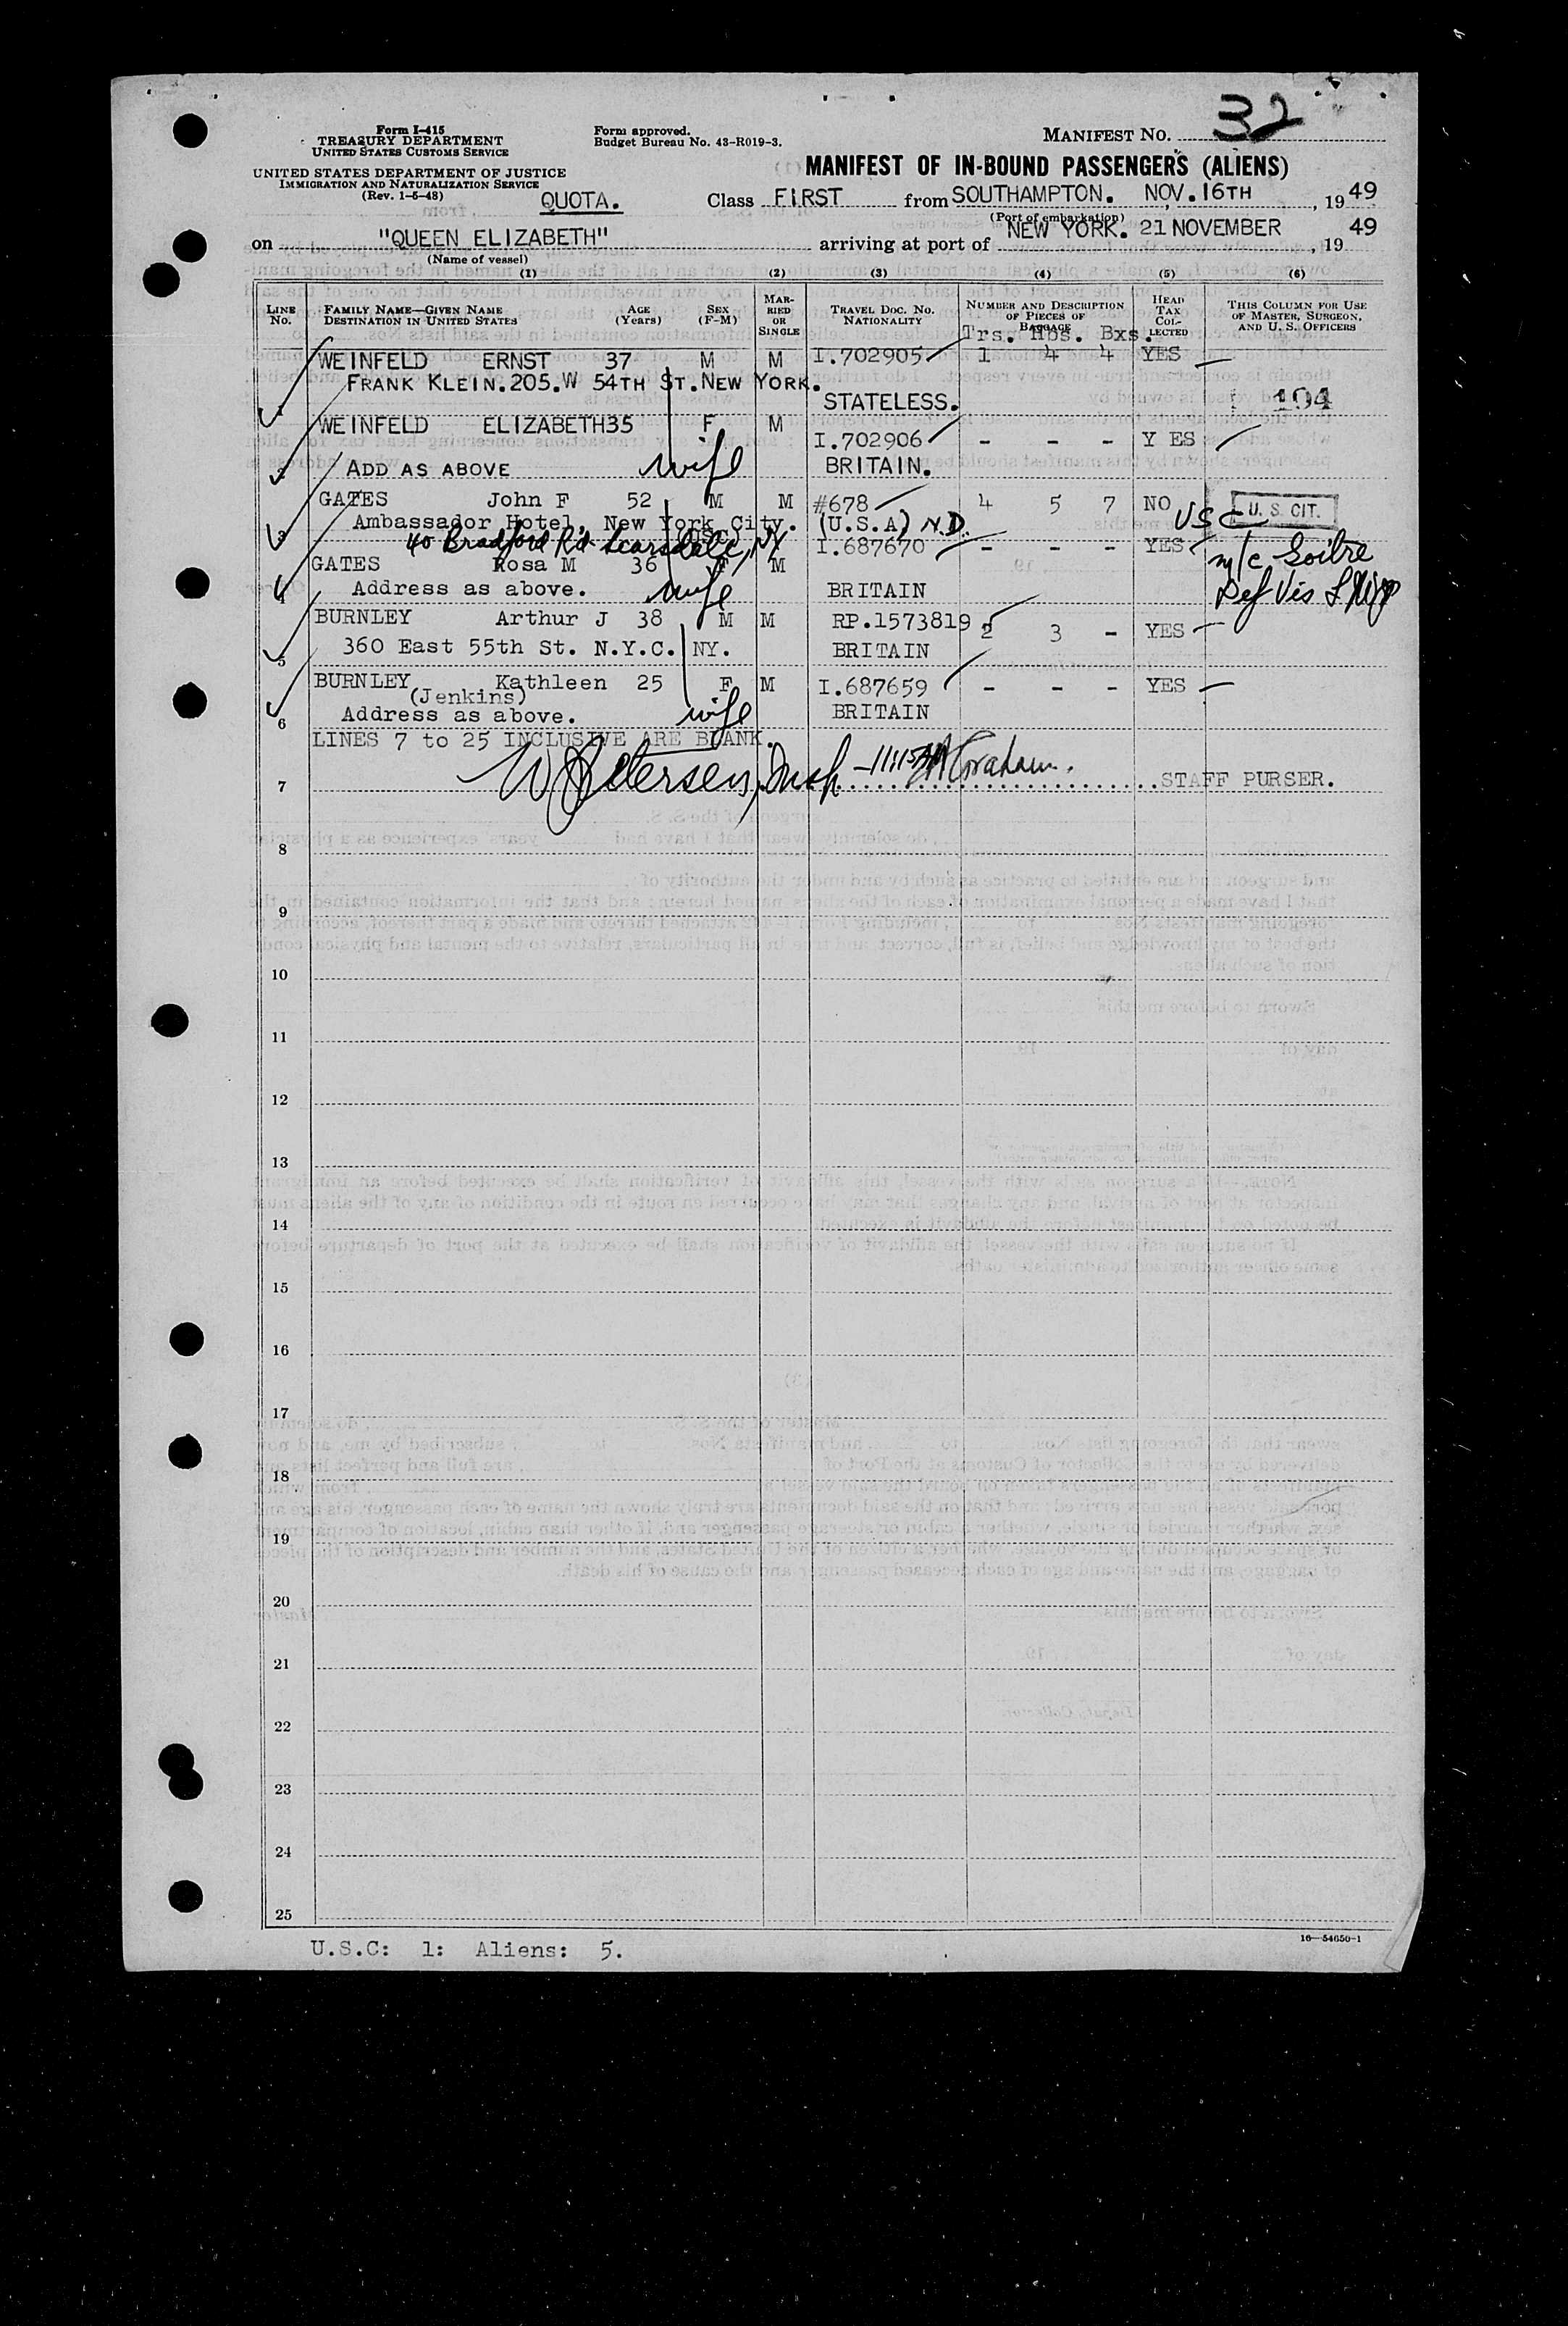 32
Form I-415
TREASURY DEPARTMENT
UNITED STATES CUSTOMS SERVICE
Form approved.
Budget Bureau No. 43-R019-3.
MANIFEST NO.
UNITED STATES DEPARTMENT OF JUSTICE
IMMIGRATION AND NATURALIZATION SERVICE
(Rev. 1-5-48)
MANIFEST OF IN-BOUND PASSENGERS (ALIENS)
QUOTA. Class FIRST from SOUTHAMPTON. NOV. 16TH, 1949
(Port of embarkation)
on "QUEEN ELIZABETH" arriving at port of NEW YORK. 21 NOVEMBER, 1949
(Name of vessel)
(1) (2) (3) (4) (5) (6)
LINE No. FAMILY NAME—GIVEN NAME DESTINATION IN UNITED STATES AGE (Years) SEX (F-M) MARRIED OR SINGLE TRAVEL DOC. NO. NATIONALITY NUMBER AND DESCRIPTION OF PIECES OF BAGGAGE HEAD TAX COLLECTED THIS COLUMN FOR USE OF MASTER, SURGEON, AND U. S. OFFICERS
Trs. Hbs. Bxs.
WEINFELD ERNST 37 M M I.702905 1 4 4 YES —
FRANK KLEIN. 205. W 54TH ST. NEW YORK.
1 STATELESS. 194
WEINFELD ELIZABETH 35 F M I.702906 - - - Y ES
2 ADD AS ABOVE wife BRITAIN.
GATES John F 52 M M #678 4 5 7 NO USC U. S. CIT.
3 Ambassador Hotel, New York City. (U.S.A) N.D.
40 Bradford Rd Scarsdale, NY
GATES Rosa M 36 F M I.687670 - - - YES m/c Goitre
4 Address as above. wife BRITAIN Def Vis
BURNLEY Arthur J 38 M M RP.1573819 2 3 - YES —
5 360 East 55th St. N.Y.C. NY. BRITAIN
BURNLEY Kathleen 25 F M I.687659 - - - YES —
(Jenkins)
6 Address as above. wife BRITAIN
LINES 7 to 25 INCLUSIVE ARE BLANK.
7 W Petersen, Insp Graham. STAFF PURSER.
8
9
10
11
12
13
14
15
16
17
18
19
20
21
22
23
24
25
U.S.C: 1: Aliens: 5.
16—54650-1